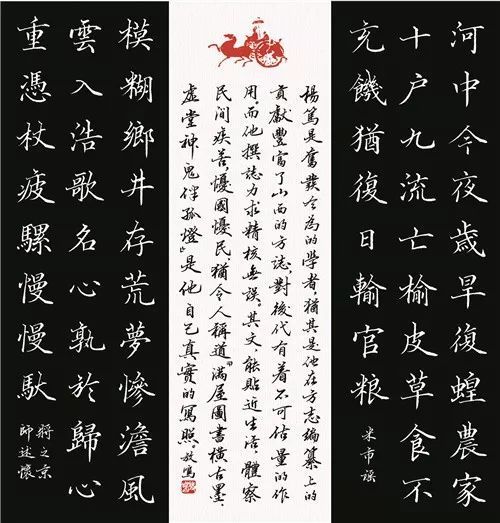 河中今夜歲旱復蝗農家
十户九流亡榆皮草食不
充饑猶復日輸官粮
米市謡
楊篤是奮發令為的學者,猶其是他在方志編纂上的
貢獻豐富了山西的方誌,對後代有着不可估量的作
用,而他撰誌力求精核無誤,其文,能貼近生活,體察
民間疾苦,憂國憂民,猶令人稱道“滿屋圖書横古墨,
虚堂神鬼伴孤燈”是他自己真實的寫照。敬寫
模糊鄉井存荒夢慘澹風
雲入浩歌名心孰於歸心
重憑杖疲騾慢慢馱
將之京
師述懷